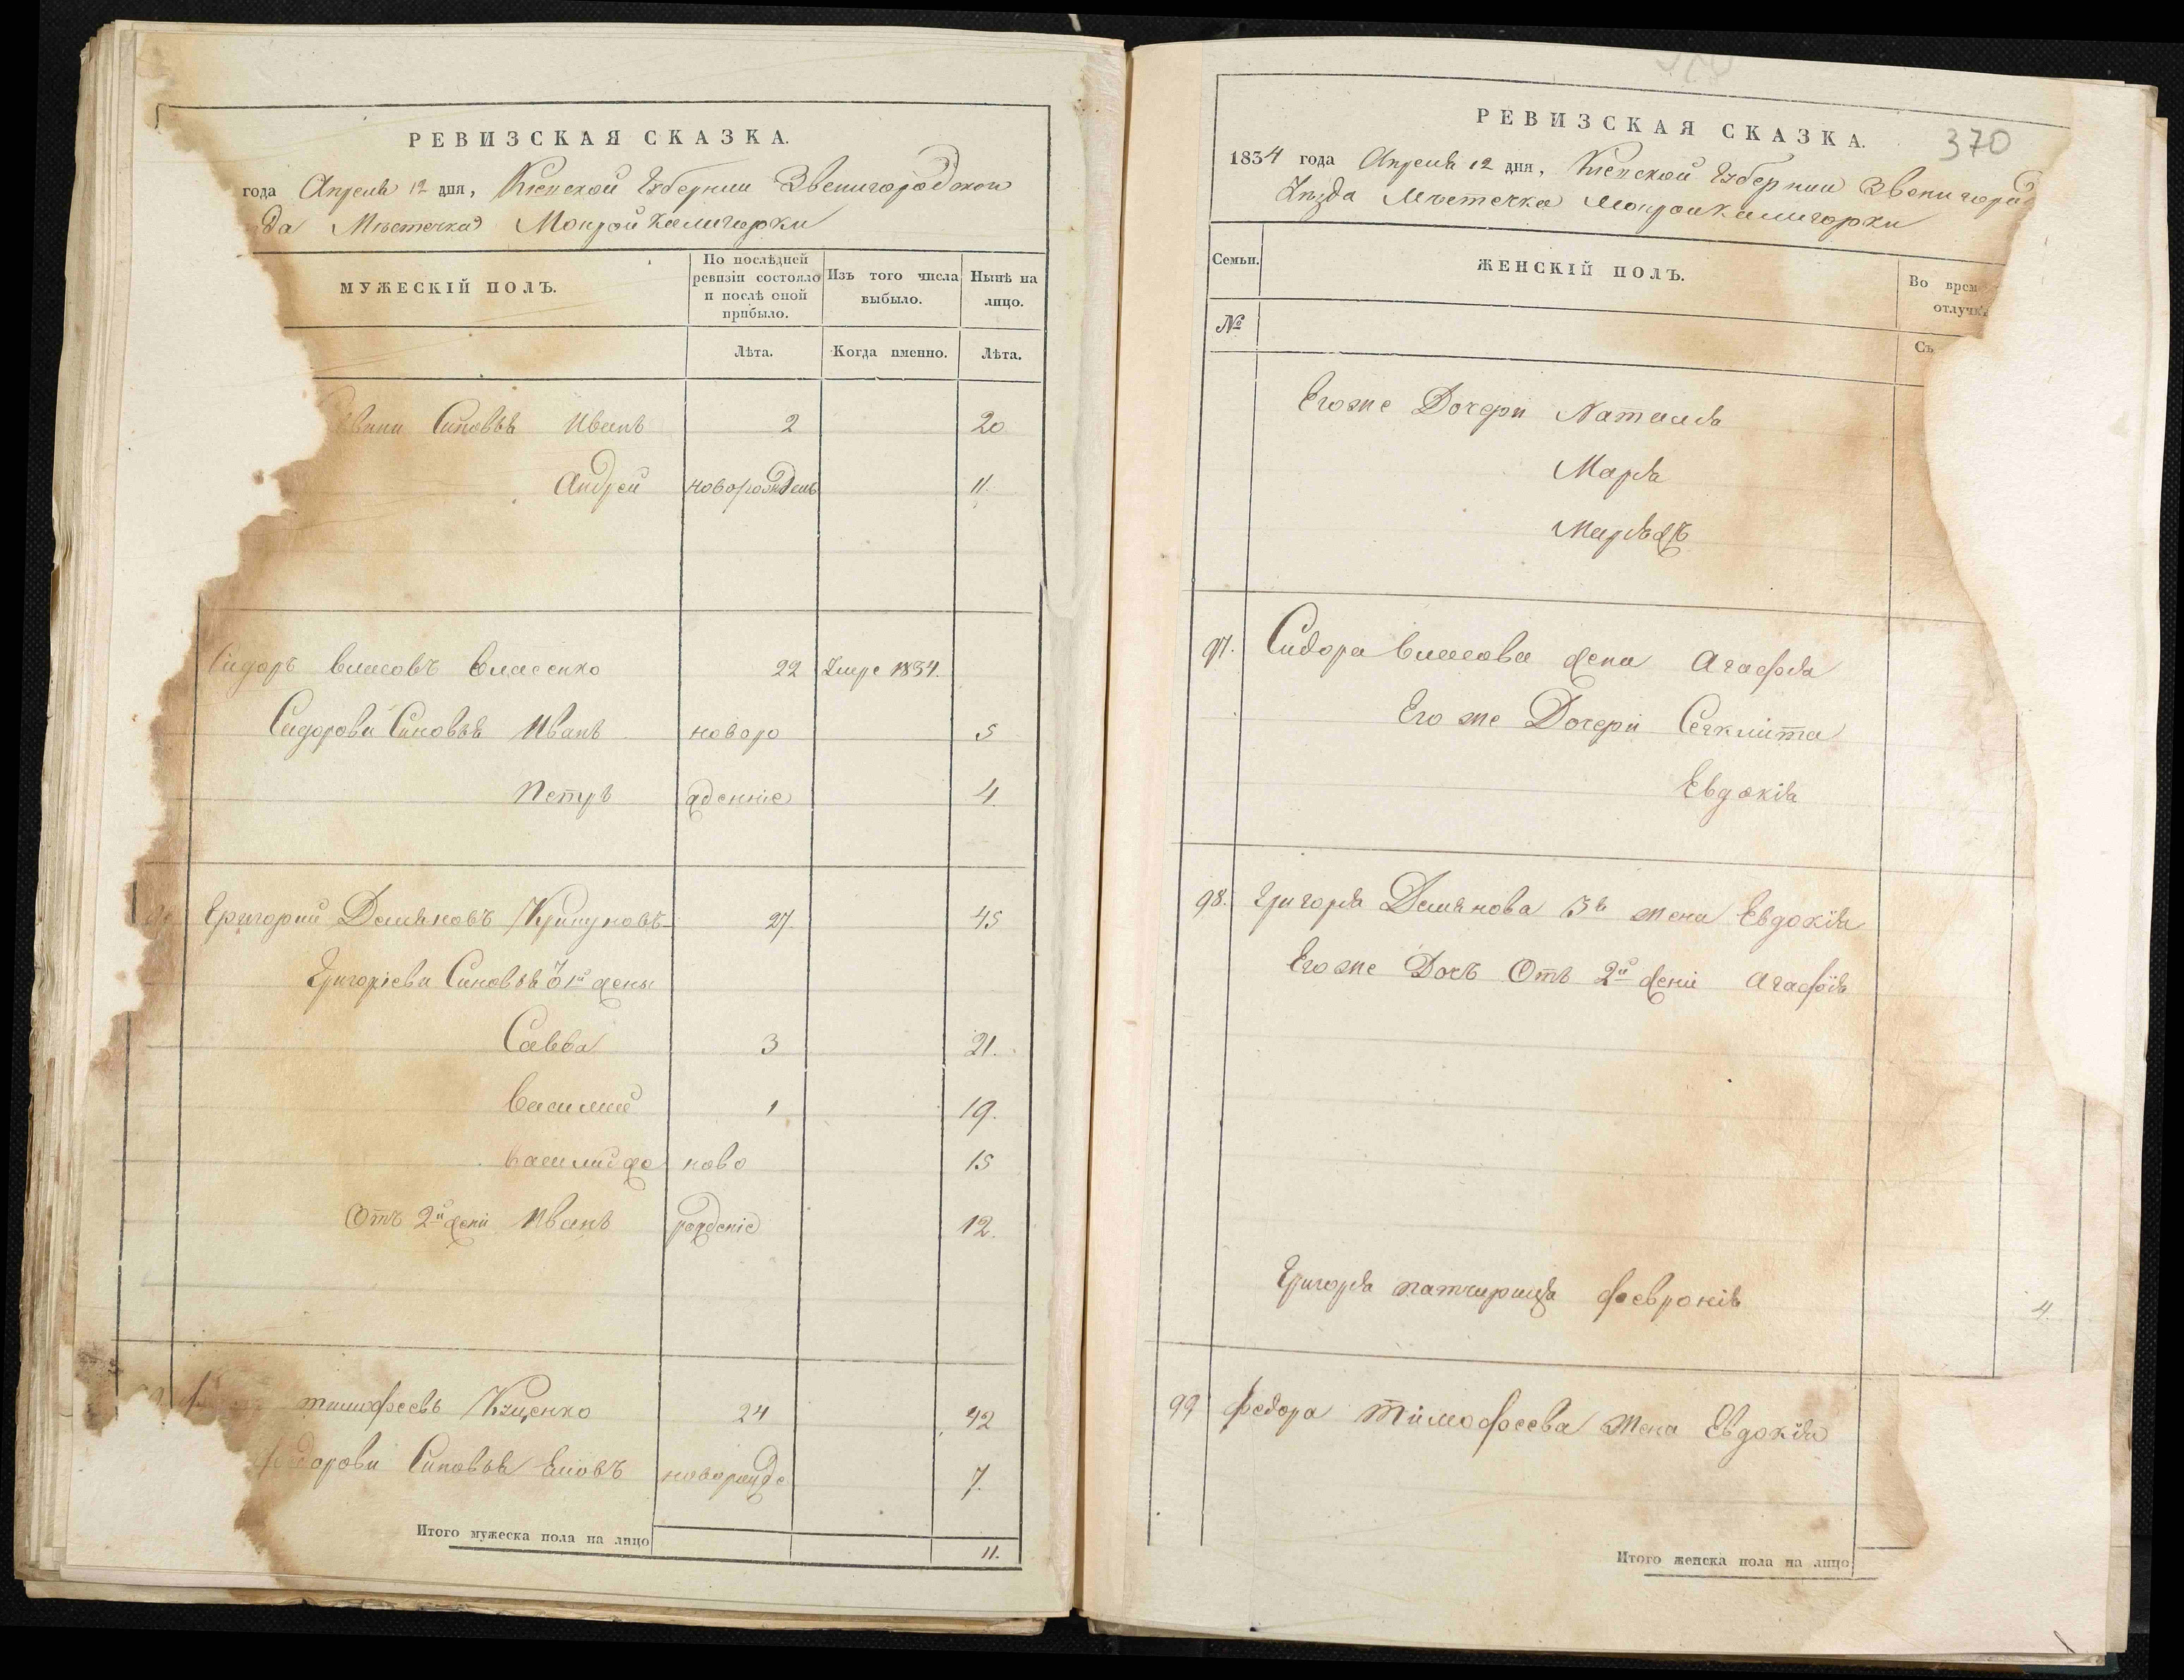 РЕВИЗСКАЯ СКАЗКА.
года Апреля 12 дня, Кіевской Губернии Звенигородской
да Мѣстечка Мокрой Калигорки
МУЖЕСКІЙ ПОЛЪ.
По послѣдней ревизіи состояло и послѣ оной прибыло.
Изъ того числа выбыло.
Нынѣ на лицо.
Лѣта.
Когда именно.
Лѣта.
Синовья Иванъ 2 20
Андрей новорожденъ 11.
Сидоръ Власовъ Власенко 22 Умре 1834.
Сидорови Синовья Иванъ новоро 5
Петръ жденніе 4.
Григорий Демяновъ Крикуновъ 27. 45
Григоріеви Синовья 1й жены
Савва 3 21.
Василий 1 19.
Василий же ново 15
Отъ 2й жени Иванъ рожденіе 12.
тимофеевъ Куценко 24 42
Федорови Синовья новорожде 7.
Итого мужеска пола на лицо 11.
РЕВИЗСКАЯ СКАЗКА.
370
1834 года Апреля 12 дня, Кіевской Губернии Звенигород
Уѣзда Мѣстечка Мокрой Калигорки
Семьи.
ЖЕНСКІЙ ПОЛЪ.
Во врем
отлучк
№
Съ
Егоже Дочери Наталя
Маря
Маряжъ
97. Сидора Власова жена Агафія
Его же Дочери
Евдокія
98. Григоря Демянова 3я жена Евдокія
Егоже Дочъ Отъ 2й жени Агафія
Григоря Февронія 4.
99 Федора Тимофеева жена Евдокія
Итого женска пола на лицо